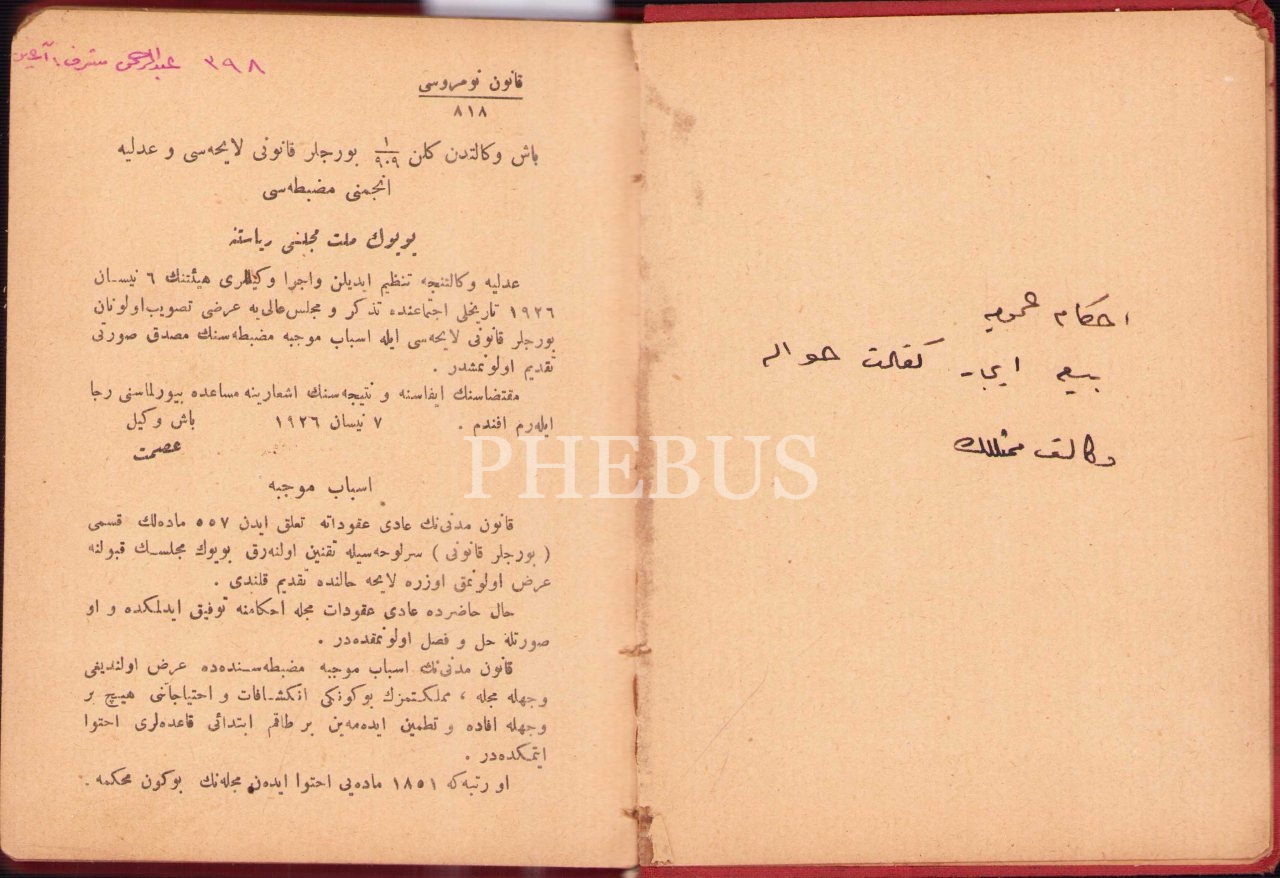 احكام عموميه
بيع ايجار كفالت حواله
وكالت
٣٩٨ عبدالرحمن شرف
قانون نومروسى
٨١٨
باش وكالتدن كلن ١/٩٠٩ بورجلر قانونى لايحه‌سى و عدليه
انجمنى مضبطه‌سى
بويوك ملت مجلسى رياستنه
عدليه وكالتنجه تنظيم ايديلن واجرا وكيللرى هيئتنك ٦ نيسان
١٩٢٦ تاريخلى اجتماعنده تذكر و مجلس عالى‌يه عرضى تصويب اولونان
بورجلر قانونى لايحه‌سى ايله اسباب موجبه مضبطه‌سنك مصدق صورتى
تقديم اولونمشدر .
مقتضاسنك ايفاسنه و نتيجه‌سنك اشعارينه مساعده بيورلماسنى رجا
ايله‌رم افندم . ٧ نيسان ١٩٢٦ باش وكيل
عصمت
اسباب موجبه
قانون مدنى‌نك عادى عقوداته تعلق ايدن ٥٥٧ ماده‌لك قسمى
( بورجلر قانونى ) سرلوحه‌سيله تقنين اولنه‌رق بويوك مجلسك قبولنه
عرض اولونمق اوزره لايحه حالنده تقديم قلندى .
حال حاضرده عادى عقودات مجله احكامنه توفيق ايدلمكده و او
صورتله حل و فصل اولونمقده‌در .
قانون مدنى‌نك اسباب موجبه مضبطه‌سنده‌ده عرض اولنديغى
وجهله مجله ، مملكتمزك بوكونكى انكشافات و احتياجاتنى هيچ بر
وجهله افاده و تطمين ايده‌مه‌ين بر طاقم ابتدائى قاعده‌لرى احتوا
ايتمكده‌در .
او رتبه‌كه ١٨٥١ ماده‌يى احتوا ايده‌ن مجله‌نك بوكون محكمه .
PHEBUS